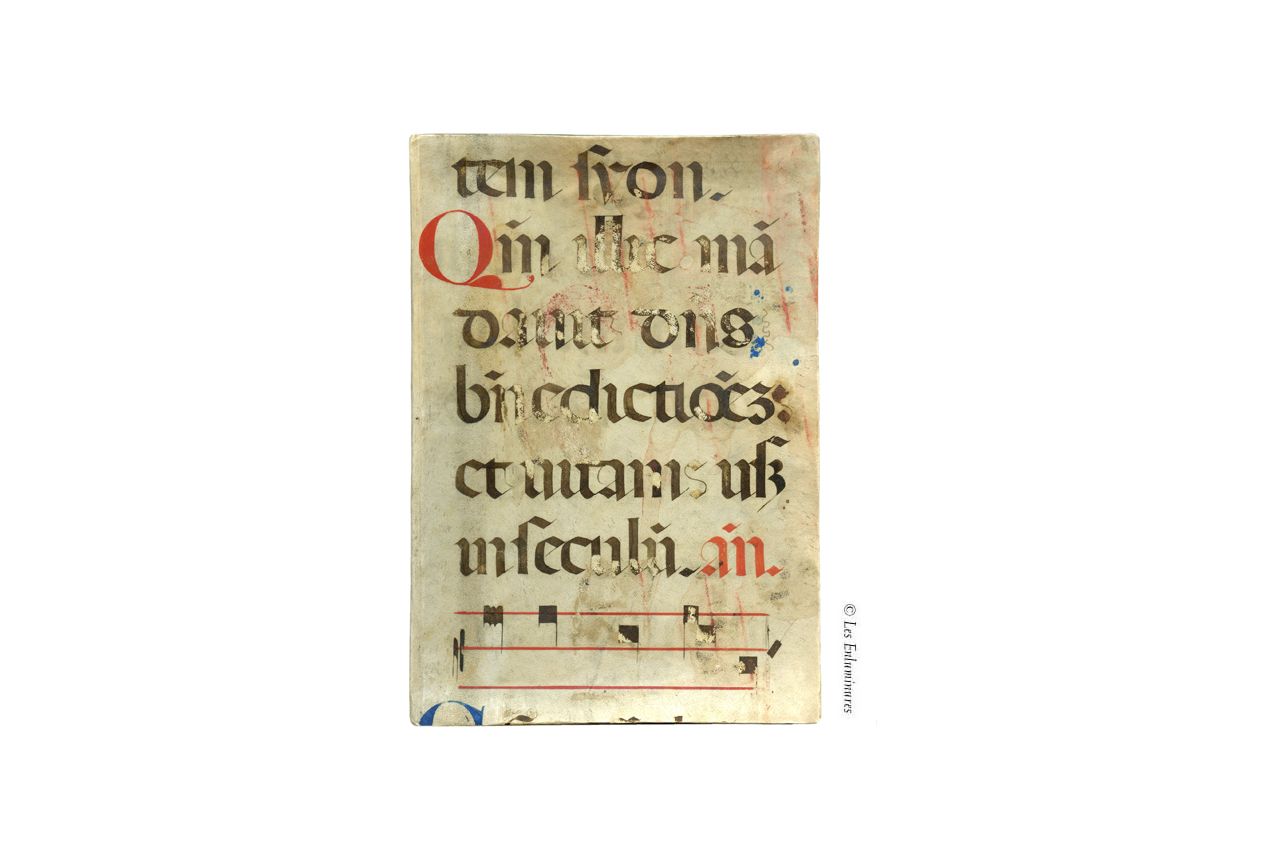 tem syon.
Qm̄ illuc mā
dauit dn̄s
bn̄edictiōēz:
et uitam usq
in seculū. an̄.
© Les Enluminures